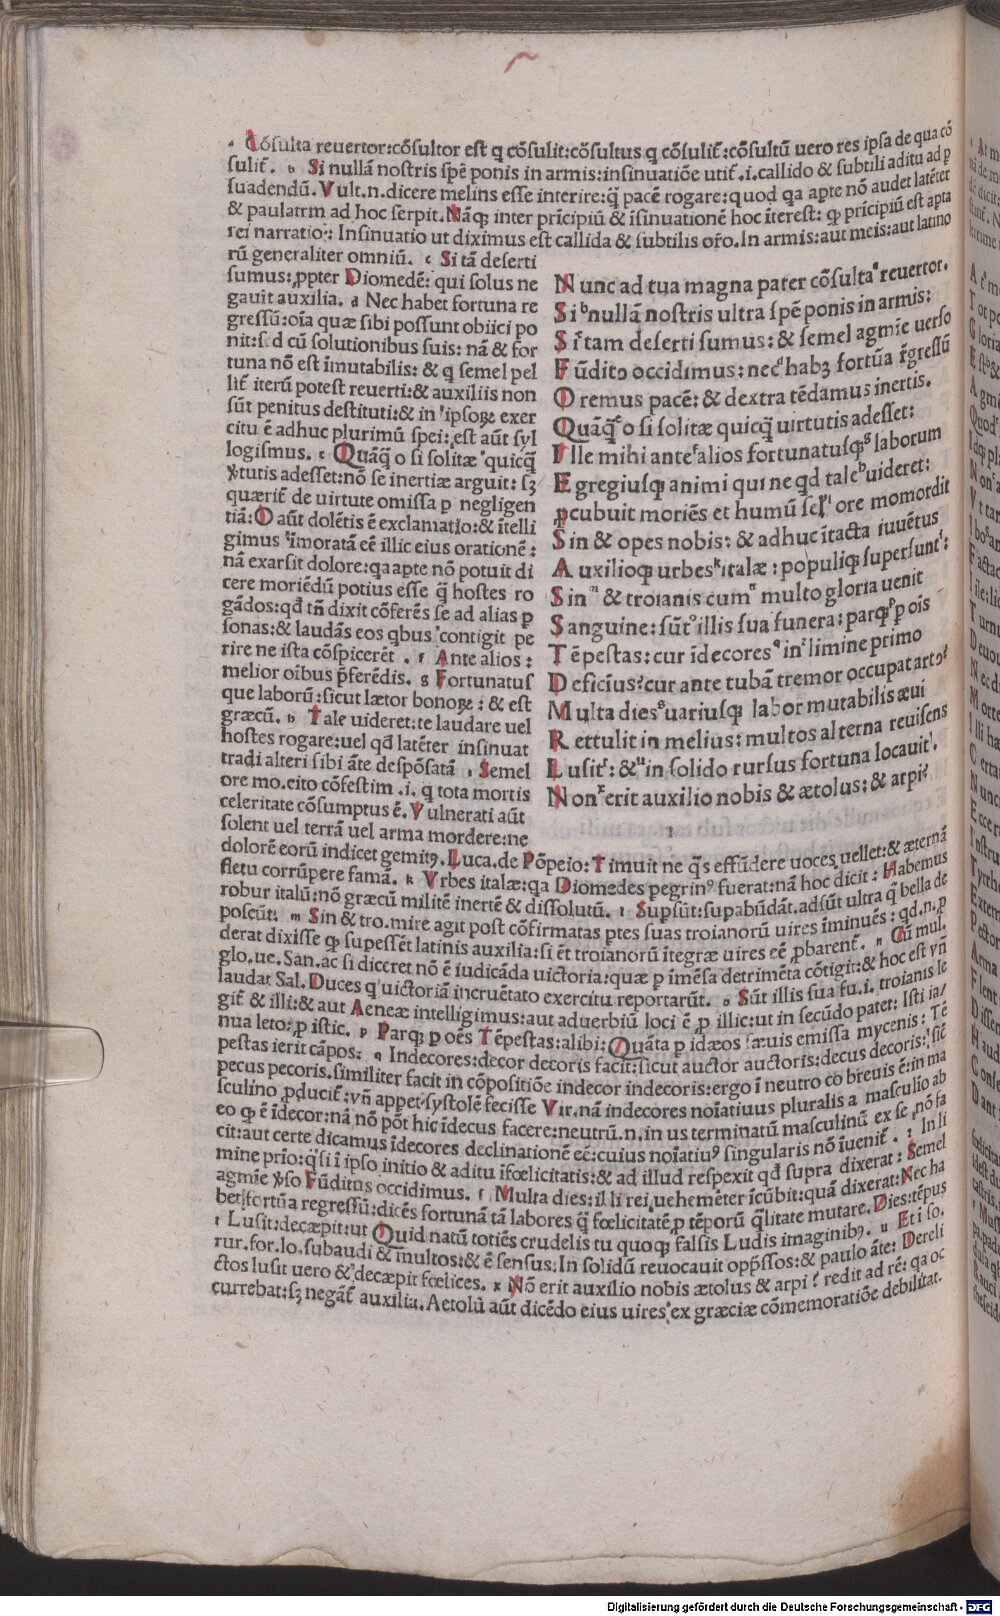 a Cōsulta reuertor:cōsultor est q cōsulit:cōsultus q cōsulit̄:cōsultū uero res ipsa de qua cō
sulit̄. b Si nullā nostris spē ponis in armis:insinuatiōe utit̄.i.callido & subtili aditu ad p
suadendū.Vult.n.dicere melins esse interire:q̄ pacē rogare:quod qa apte nō audet latēter
& paulatrm ad hoc serpit.Nāq; inter prīcipiū & īsinuationē hoc īterest: ꝙ prīcipiū est apta
rei narratio: Insinuatio ut diximus est callida & subtilis or̄o.In armis:aut meis:aut latino
rū generaliter omniū. c Si tā deserti
sumus:ꝓpter Diomedē: qui solus ne
gauit auxilia. d Nec habet fortuna re
gressū:oīa quæ sibi possunt obiici po
nit:sed cū solutionibus suis: nā & for
tuna nō est īmutabilis: & q semel pel
lit̄ iterū potest reuerti:& auxiliis non
sūt penitus destituti:& in ipsoꝝ exer
citu ē adhuc plurimū spei: est aūt syl
logismus. e Quāq̄ o si solitæ quicq̄
v̄tutis adesset:nō se inertiæ arguit: sꝫ
quærit̄ de uirtute omissa p negligen
tiā:O aūt dolētis ē exclamatio:& ītelli
gimus īmoratā eē illic eius orationē :
nā exarsit dolore:qa apte nō potuit di
cere moriēdū potius esse q̄ hostes ro
gādos:qd̄ tn̄ dixit cōferēs se ad alias p
sonas:& laudās eos qbus contigit pe
rire ne ista cōspicerēt . f Ante alios :
melior oībus p̄ferēdis. g Fortunatus
que laborū:sicut lætor bonoꝝ : & est
græcū. h Tale uideret:te laudare uel
hostes rogare:uel qd̄ latēter insinuat
tradi alteri sibi āte despōsatā i Semel
ore mo.cito cōfestim .i. q tota mortis
celeritate cōsumptus ē. Vulnerati aūt
solent uel terrā uel arma mordere:ne
Nunc ad tua magna pater cōsulta a reuertor.
Si b nullā nostris ultra spē ponis in armis:
Si c tam deserti sumus: & semel agmīe uerso
Fūdito occidimus: nec d habꝫ fortūa r̄gressū
Oremus pacē: & dextra tēdamus inertis.
Quāq̄ e o si solitæ quicq̄ uirtutis adesset:
Ille mihi ante f alios fortunatusq; g laborum
Egregiusq; animi qui ne qd tale h uideret:
ꝓcubuit moriēs et humū sel̄ i ore momordit
Sin & opes nobis: & adhuc ītacta iuuētus
Auxilioq; urbes k italæ : populiq; supersunt l:
Sin m & troianis cum n multo gloria uenit
Sanguine: sūt o illis sua funera: parq; p p oīs
Tēpestas: cur īdecores q in r limine primo
Deficīus? cur ante tubā tremor occupat artꝰ?
Multa dies s uariusq; labor mutabilis æui
Rettulit in melius: multos alterna reuisens
Lusit t: & u in solido rursus fortuna locauit.
Non x erit auxilio nobis & ætolus: & arpi?
dolorē eorū indicet gemitꝰ.Luca.de Pōpeio:Timuit ne q̄s effūdere uoces uellet:& æternā
fletu corrūpere famā. k Vrbes italæ:qa Diomedes pegrinꝰ fuerat:nā hoc dicit : Habemus
robur italū:nō græcū militē inertē & dissolutū. l Supsūt:supabūdāt.adsūt ultra q̄ bella de
poscūt. m Sin & tro.mire agit post cōfirmatas ptes suas troianorū uires īminuēs : qd.n.p
derat dixisse ꝙ supessēt latinis auxilia:si ēt troianorū ītegræ uires eē ꝓbarent̄. n Cū mul.
glo.ue.San.ac si diceret nō ē iudicāda uictoria:quæ p īmēsa detrimēta cōtigit:& hoc est vn̄
laudat Sal.Duces q uictoriā incruētato exercitu reportarūt. o Sūt illis sua fu.i. troianis le
git̄ & illi:& aut Aeneæ intelligimus:aut aduerbiū loci ē ꝓ illic:ut in secūdo patet: Isti ia/
nua leto:ꝓ istic. p Parq; p oēs Tēpestas:alibi:Quāta p idæos sæuis emissa mycenis : Tē
pestas ierit cāpos: q Indecores:decor decoris facit:sicut auctor auctoris:decus decoris:sic̄
pecus pecoris.similiter facit in cōpositiōe indecor indecoris:ergo ī neutro co breuis ē:in ma
sculino ꝓducit̄:vn̄ appet systolē fecisse Vir.nā indecores noīatiuus pluralis a masculio ab
eo ꝙ ē īdecor:nā nō pōt hic īdecus facere:neutrū.n.in us terminatū masculinū ex se nō fa
cit:aut certe dicamus īdecores declinationē eē:cuius noīatiuꝰ singularis nō īuenit̄ . r In li
mine prīo:q̄si ī ipso initio & aditu īfœlicitatis:& ad illud respexit qd̄ supra dixerat : Semel
agmīe v̄so Fūditus occidimus. s Multa dies:il li rei uehemēter īcūbit:quā dixerat:Nec ha
bet fortūa regressū:dicēs fortunā tā labores q̄ fœlicitatē p tēporū q̄litate mutare.Dies:tēpus
t Lusit:decæpit:ut Quid natū totiēs crudelis tu quoq; falsis Ludis imaginibꝰ. u Et i so.
rur.for.lo.subaudi & multos:& ē sensus.In solidū reuocauit opp̄ssos:& paulo āte: Dereli
ctos lusit uero & decæpit fœlices. x Nō erit auxilio nobis ætolus & arpi ? redit ad rē: qa oc
currebat:sꝫ negāt̄ auxilia.Aetolū aūt dicēdo eius uires ex græciæ cōmemoratiōe debilitat.
Digitalisierung gefördert durch die Deutsche Forschungsgemeinschaft - DFG